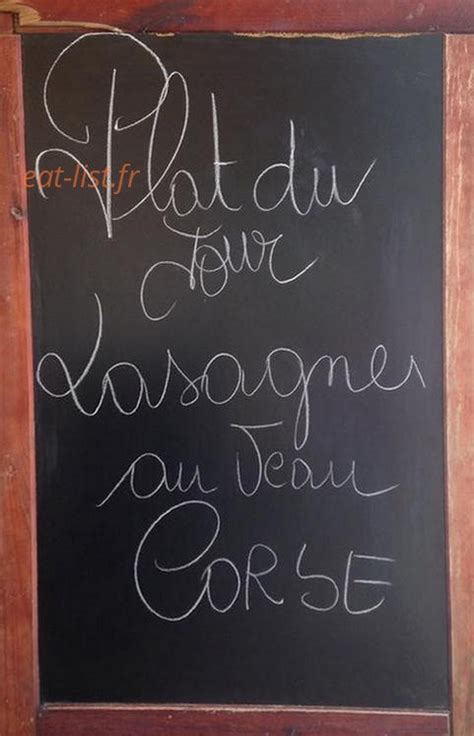 Plat du
Jour
eat-list.fr
Lasagnes
au Veau
CORSE